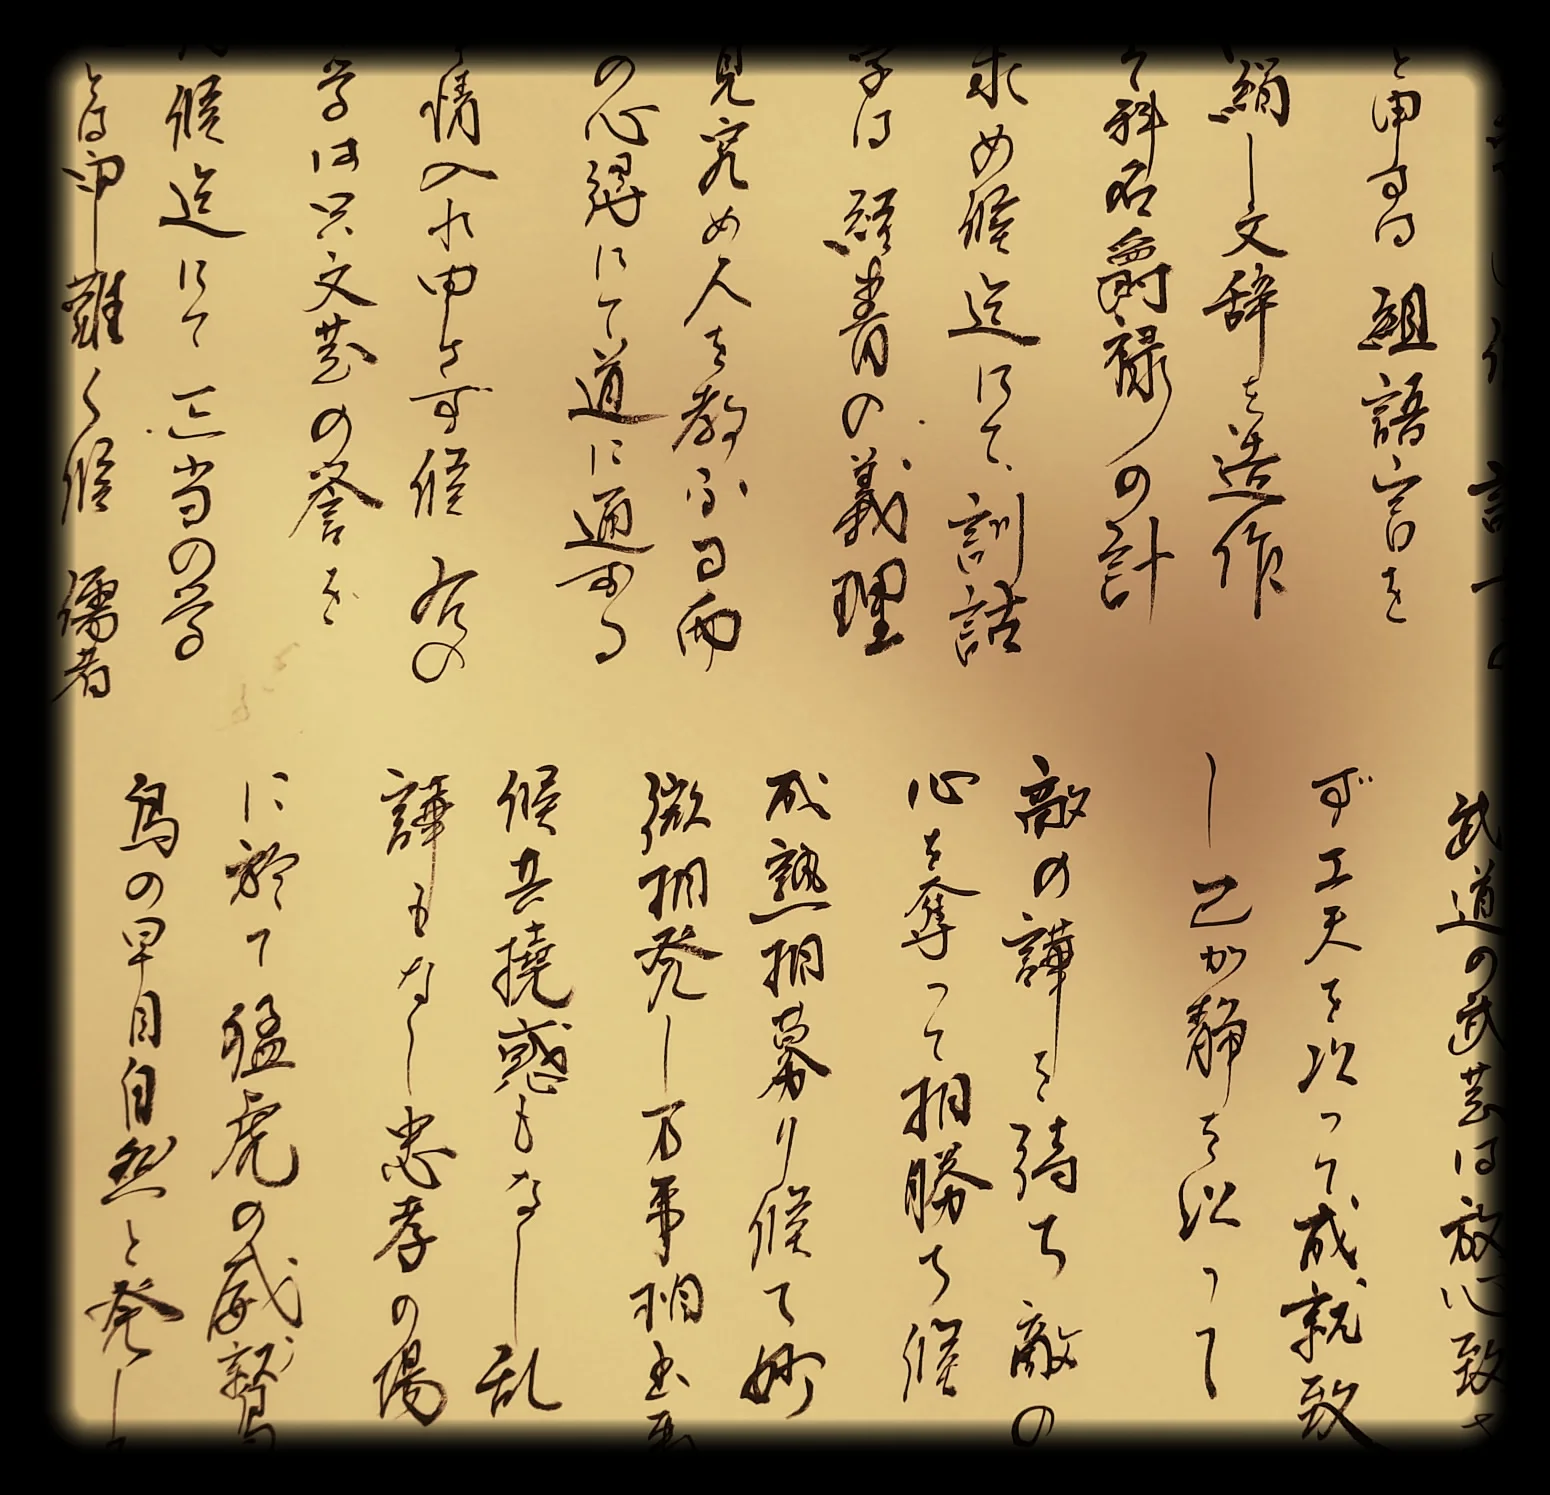 と申すは 組語言を
絹し文辞を造作
て科名爵禄の計
求め候迄にて、訓詁
学は 経書の義理
見究め人を教ふる而
の心得にて道に通ずる
情入れ申さず候 右の
学は只文芸の誉を
候迄にて 正当の学
とは申難く候 儒者
武道の武芸は放心致さ
ず工夫を以って成就致
し己が静を以って
敵の譁を待ち敵の
心を奪って相勝ち候
成熟相募り候て妙
微相発し万事相出来
候共撓惑もなし乱
譁もなし忠孝の場
に於て猛虎の威鷲
鳥の早目自然と発し